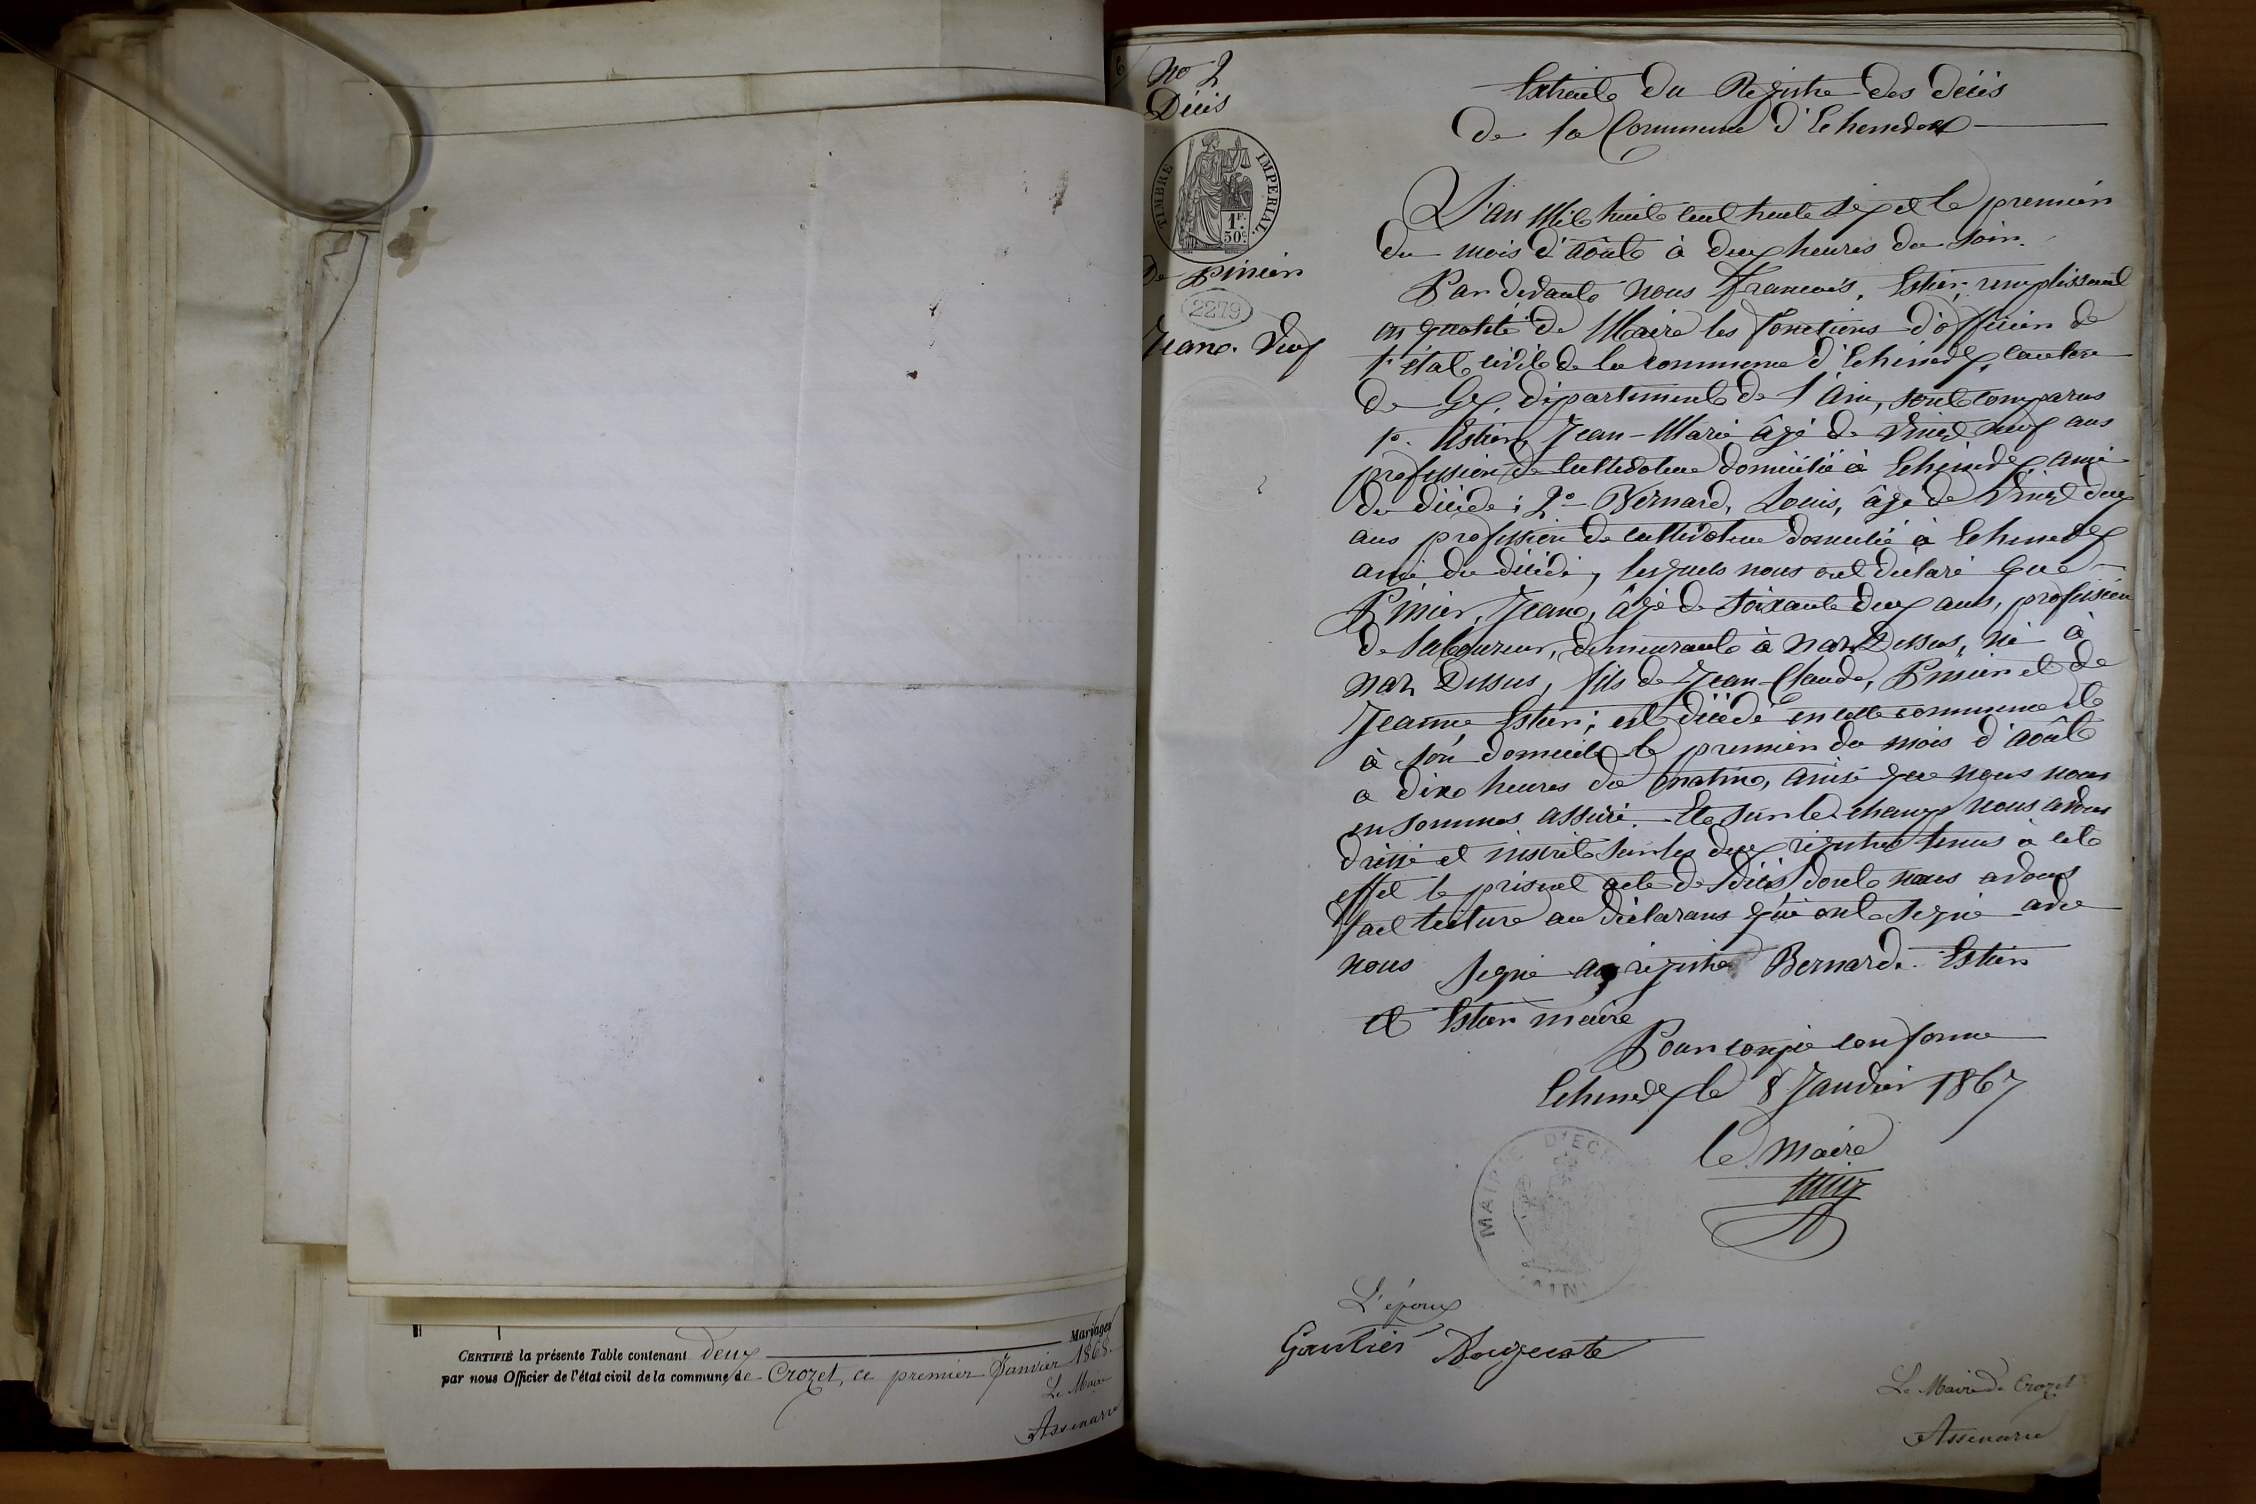 CERTIFIÉ la présente Table contenant deux Mariages
par nous Officier de l'état civil de la commune de Crozet, ce premier Janvier 1868.
Le Maire
Assenare
No 2
Décis
TIMBRE IMPERIAL.
1F.
50c.
De Pinier
2279
Jean. Veuf
Extraite du Registre des décis
de la Commune d'Echenedex
L'an Mil huit cent trente sept et le premier
du mois d'août à deux heures du soir.
Par devant nous Francois, Estier, remplissant
en qualité de Maire les fonctions d'officier de
l'état civil de la commune d'Echenedex, canton
de Gex, département de l'Ain, sont comparus
1o. Estier, Jean-Marie âgé de vingt neuf ans
profession de cultivateur domicilié à Echenedex ami
du décédé; 2o Bernard, Louis, âgé de vingt deux
ans profession de cultivateur domicilié à Echenedex
ami du décédé, lesquels nous ont déclaré que
Pinier, Jean, âgé de soixante deux ans, profession
de laboureur, demeurant à Naz Dessus, né à
Naz Dessus, fils de Jean-Claude, Pinier et de
Jeanne, Estier; est décédé en cette commune et
à son domicile le premier du mois d'août
a dixe heures du matin, ainsi que nous nous
en sommes assuré. Et sur le champ nous avons
dressé et inscrit sur les deux registres tenus à cet
effet le présent acte de décis dont nous avons
fait lecture au déclarans qui ont signé avec
nous Signé au registre Bernard. Estier
et Estier maire
Pour copie conforme
Echenedex le 8 Janvier 1867
le Maire
MAIRIE D'EC
AIN
L'époux
Gautier
Le Maire de Crozet
Assenare